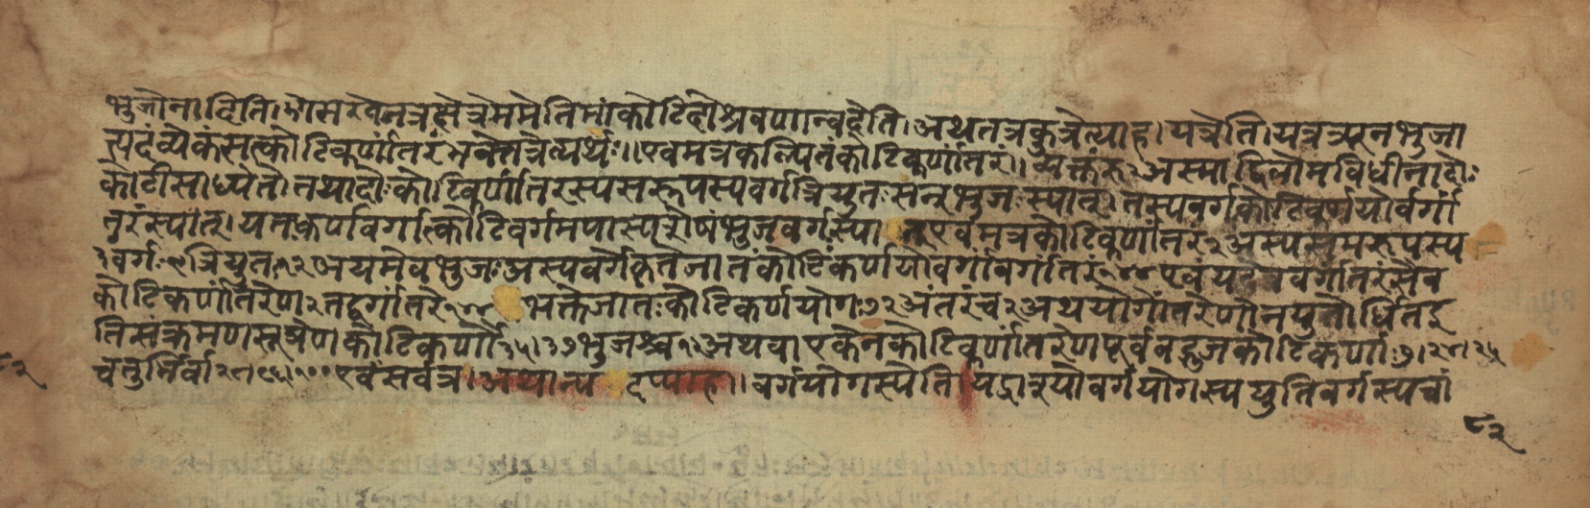 भुजोना दिति। ऽगमरवेनत्रक्षेत्रेममेतिमांकोटिदोश्रवणान्वदेति। अथतत्रकुत्रेत्याह। यत्रेति। यत्रत्र्यूनभुजा
त्पदंव्येकंसत्कोटिकर्णांतरंभवेत्तत्रेत्यर्थः॥ एवमत्रकल्पितंकोटिकर्णांतरं।
अस्माद्विलोमविधीनादोः
कोटीसाध्येते। तथादौःकोटिकर्णांतरस्यसरूपस्यवर्गस्त्रियुतःसन्भुजःस्यात्। तस्यवर्गकोटिकर्णयोर्वर्गां
तरंस्यात्। यतःकर्णवर्गात्कोटिवर्गमपास्यशेषंभुजवर्गःस्या तएवमत्रकोटिकर्णांतरं २ अस्यसमरूपस्य
३ वर्गः ९ त्रियुतः १२ अयमेवभुजः अस्यवर्गेकृतेजातंकोटिकर्णयोवर्गावर्गांतरं एवंयदववर्गांतरंसैव
कोटिकर्णांतरेण २ तद्वर्गांतरे भक्तेजातःकोटिकर्णयोगः ७२ अंतरंच २ अथयोगोंतरेणोनयुतोर्धितइ
तिसंक्रमणसूत्रेणकोटिकर्णौ ३५। ३७ भुजश्च १। अथवाएकेनकोटिकर्णांतरेणपूर्ववद्भुजकोटिकर्णाः ७। २४। २५
चतुर्भिर्वा २८। ९६। १०० एवंसर्वत्र। अथान्य दप्याह॥ वर्गयोगस्येति। यद्रात्र्योवर्गयोगस्ययुतिवर्गस्यचां
८२
८२